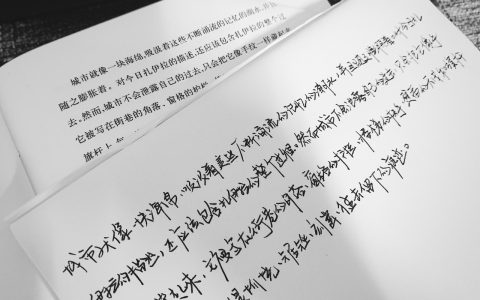 城市就像一块海绵,吸汲着这些不断涌流的记忆的潮水,并且
随之膨胀着。对今日扎伊拉的描述,还应该包含扎伊拉的整个过
去。然而,城市不会泄露自己的过去,只会把它像手纹一样
它被写在街巷的角落、窗格的
旗杆上
城市就像一块海绵,吸汲着这些不断涌流的记忆的潮水,并且随之膨胀着。对今日扎
伊拉的描述,还应该包含扎伊拉的整个过去。然而,城市不会泄露自己的过去,只会把它像手纹
一样藏起来,它被写在街巷的角落、窗格的护栏、楼梯的扶手、避雷的天线和旗杆
锯锉、刻凿、猛击留下的痕迹。